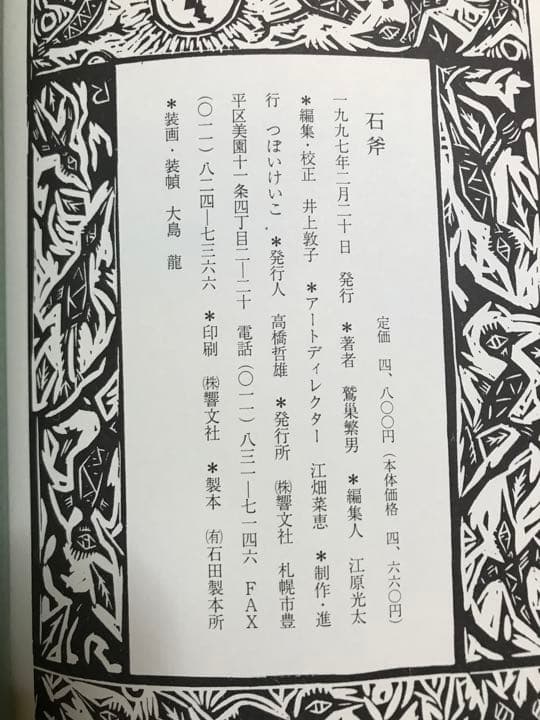 石斧
定価 四、八〇〇円（本体価格 四、六六〇円）
一九九七年二月二十日 発行 ＊著者 鷲巣繁男 ＊編集人 江原光太
＊編集・校正 井上敦子 ＊アートディレクター 江畑菜恵 ＊制作・進
行 つぼいけいこ ＊発行人 高橋哲雄 ＊発行所 ㈱響文社 札幌市豊
平区美園十一条四丁目二―二十 電話（〇一一）八三一―七一四六 FAX
（〇一一）八二四―七三六六 ＊印刷 ㈱響文社 ＊製本 ㈲石田製本所
＊装画・装幀 大島 龍